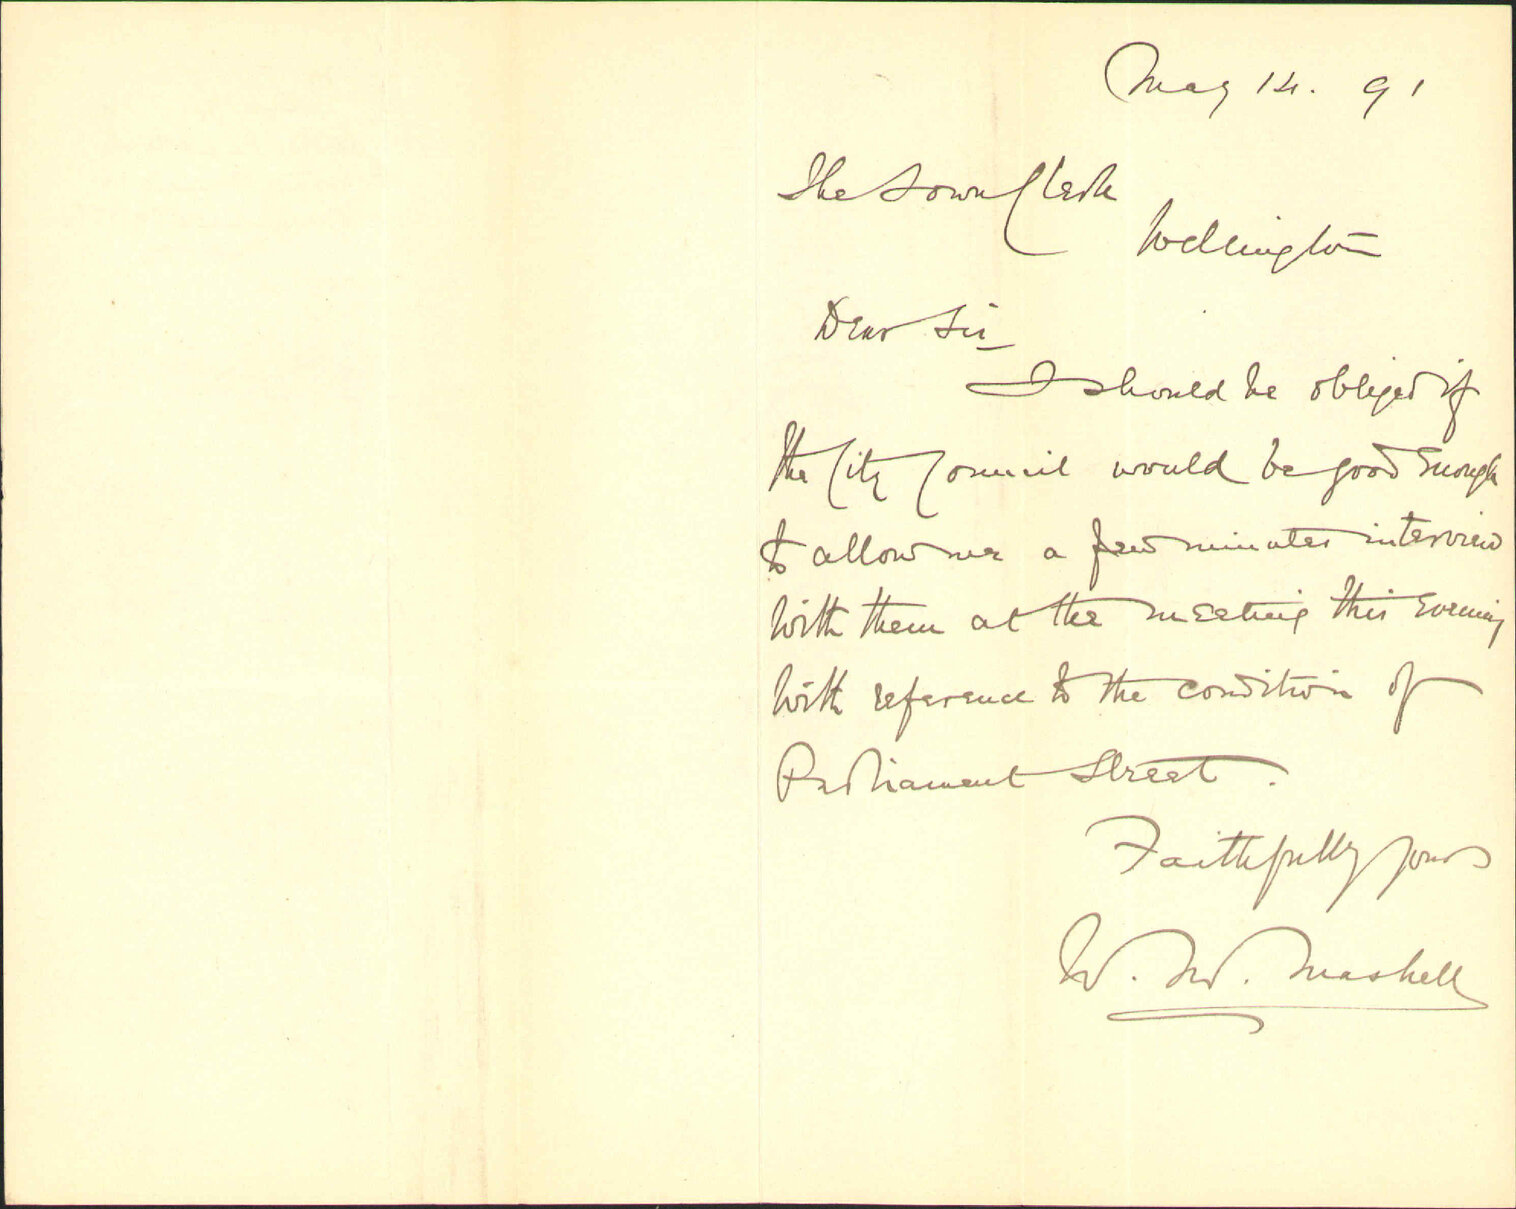 May 14. 91
The Town Clerk
Wellington
Dear Sir
I should be obliged if
the City Council would be good enough
to allow me a few minutes interview
with them at the meeting this evening
with reference to the condition of
Parliament Street.
Faithfully yours
W. M. Maskell